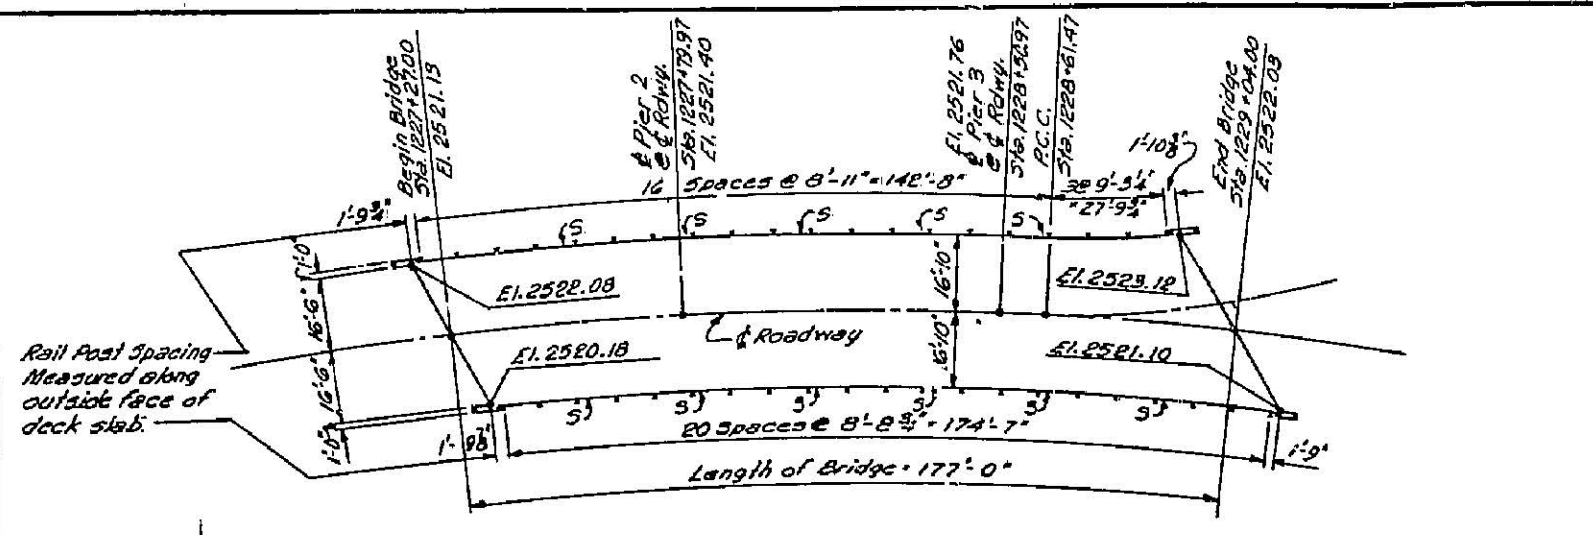 Begin Bridge
Sta. 1227+27.00
El. 2521.13
℄ Pier 2
@ ℄ Rdwy.
Sta. 1227+79.97
El. 2521.40
El. 2521.76
℄ Pier 3
@ ℄ Rdwy.
Sta. 1228+56.97
P.C.C.
Sta. 1228+61.47
End Bridge
Sta. 1229+04.00
El. 2522.03
1'-10 3/8"
16 Spaces @ 8'-11" = 142'-8"
3@ 9'-3 1/4"
= 27'-9 3/4"
1'-9 3/4"
S
S
S
S
S
1'-0
16'-6"
16'-6"
1'-0"
El. 2522.08
16'-10"
16'-10"
El. 2523.12
℄ Roadway
El. 2520.18
El. 2521.10
Rail Post Spacing
Measured along
outside face of
deck slab.
S
S
S
S
S
S
1'-9 7/8"
20 Spaces @ 8'-8 3/4" = 174'-7"
1'-9"
Length of Bridge = 177'-0"